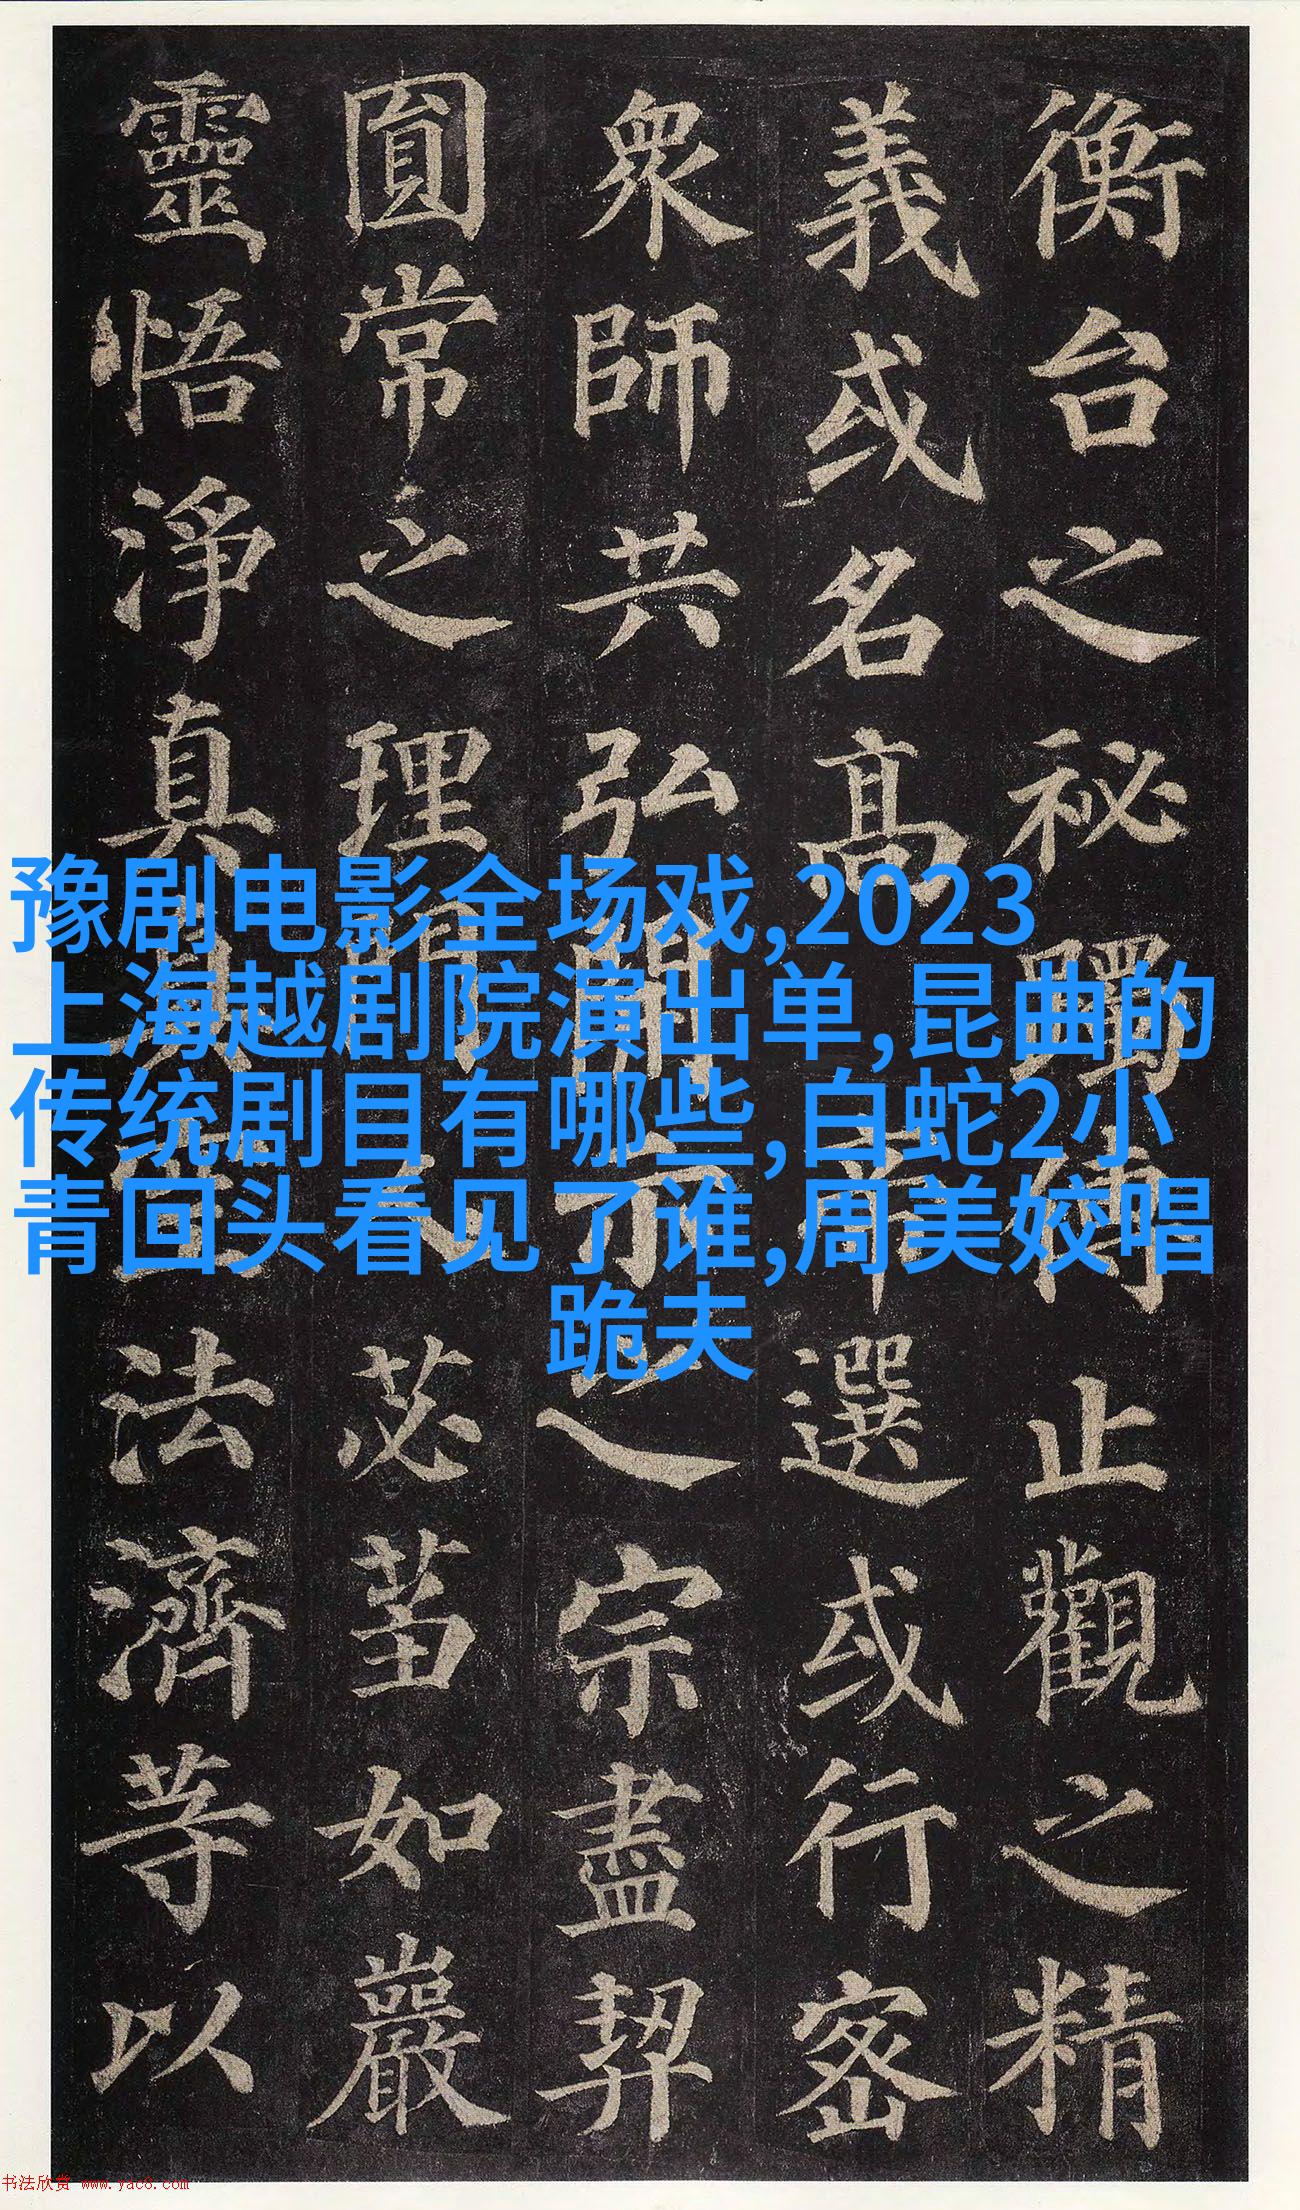 衡台之秘躅傳止觀之精
義或名高帝選或行密
衆師共弘開示之宗盡契
圓常之理門人苾芻如巖
靈悟淨真真空法濟等以
豫剧电影全场戏,2023
上海越剧院演出单,昆曲的
传统剧目有哪些,白蛇2小
青回头看见了谁,周美姣唱
跪夫
书法欣赏 www.yac8.com